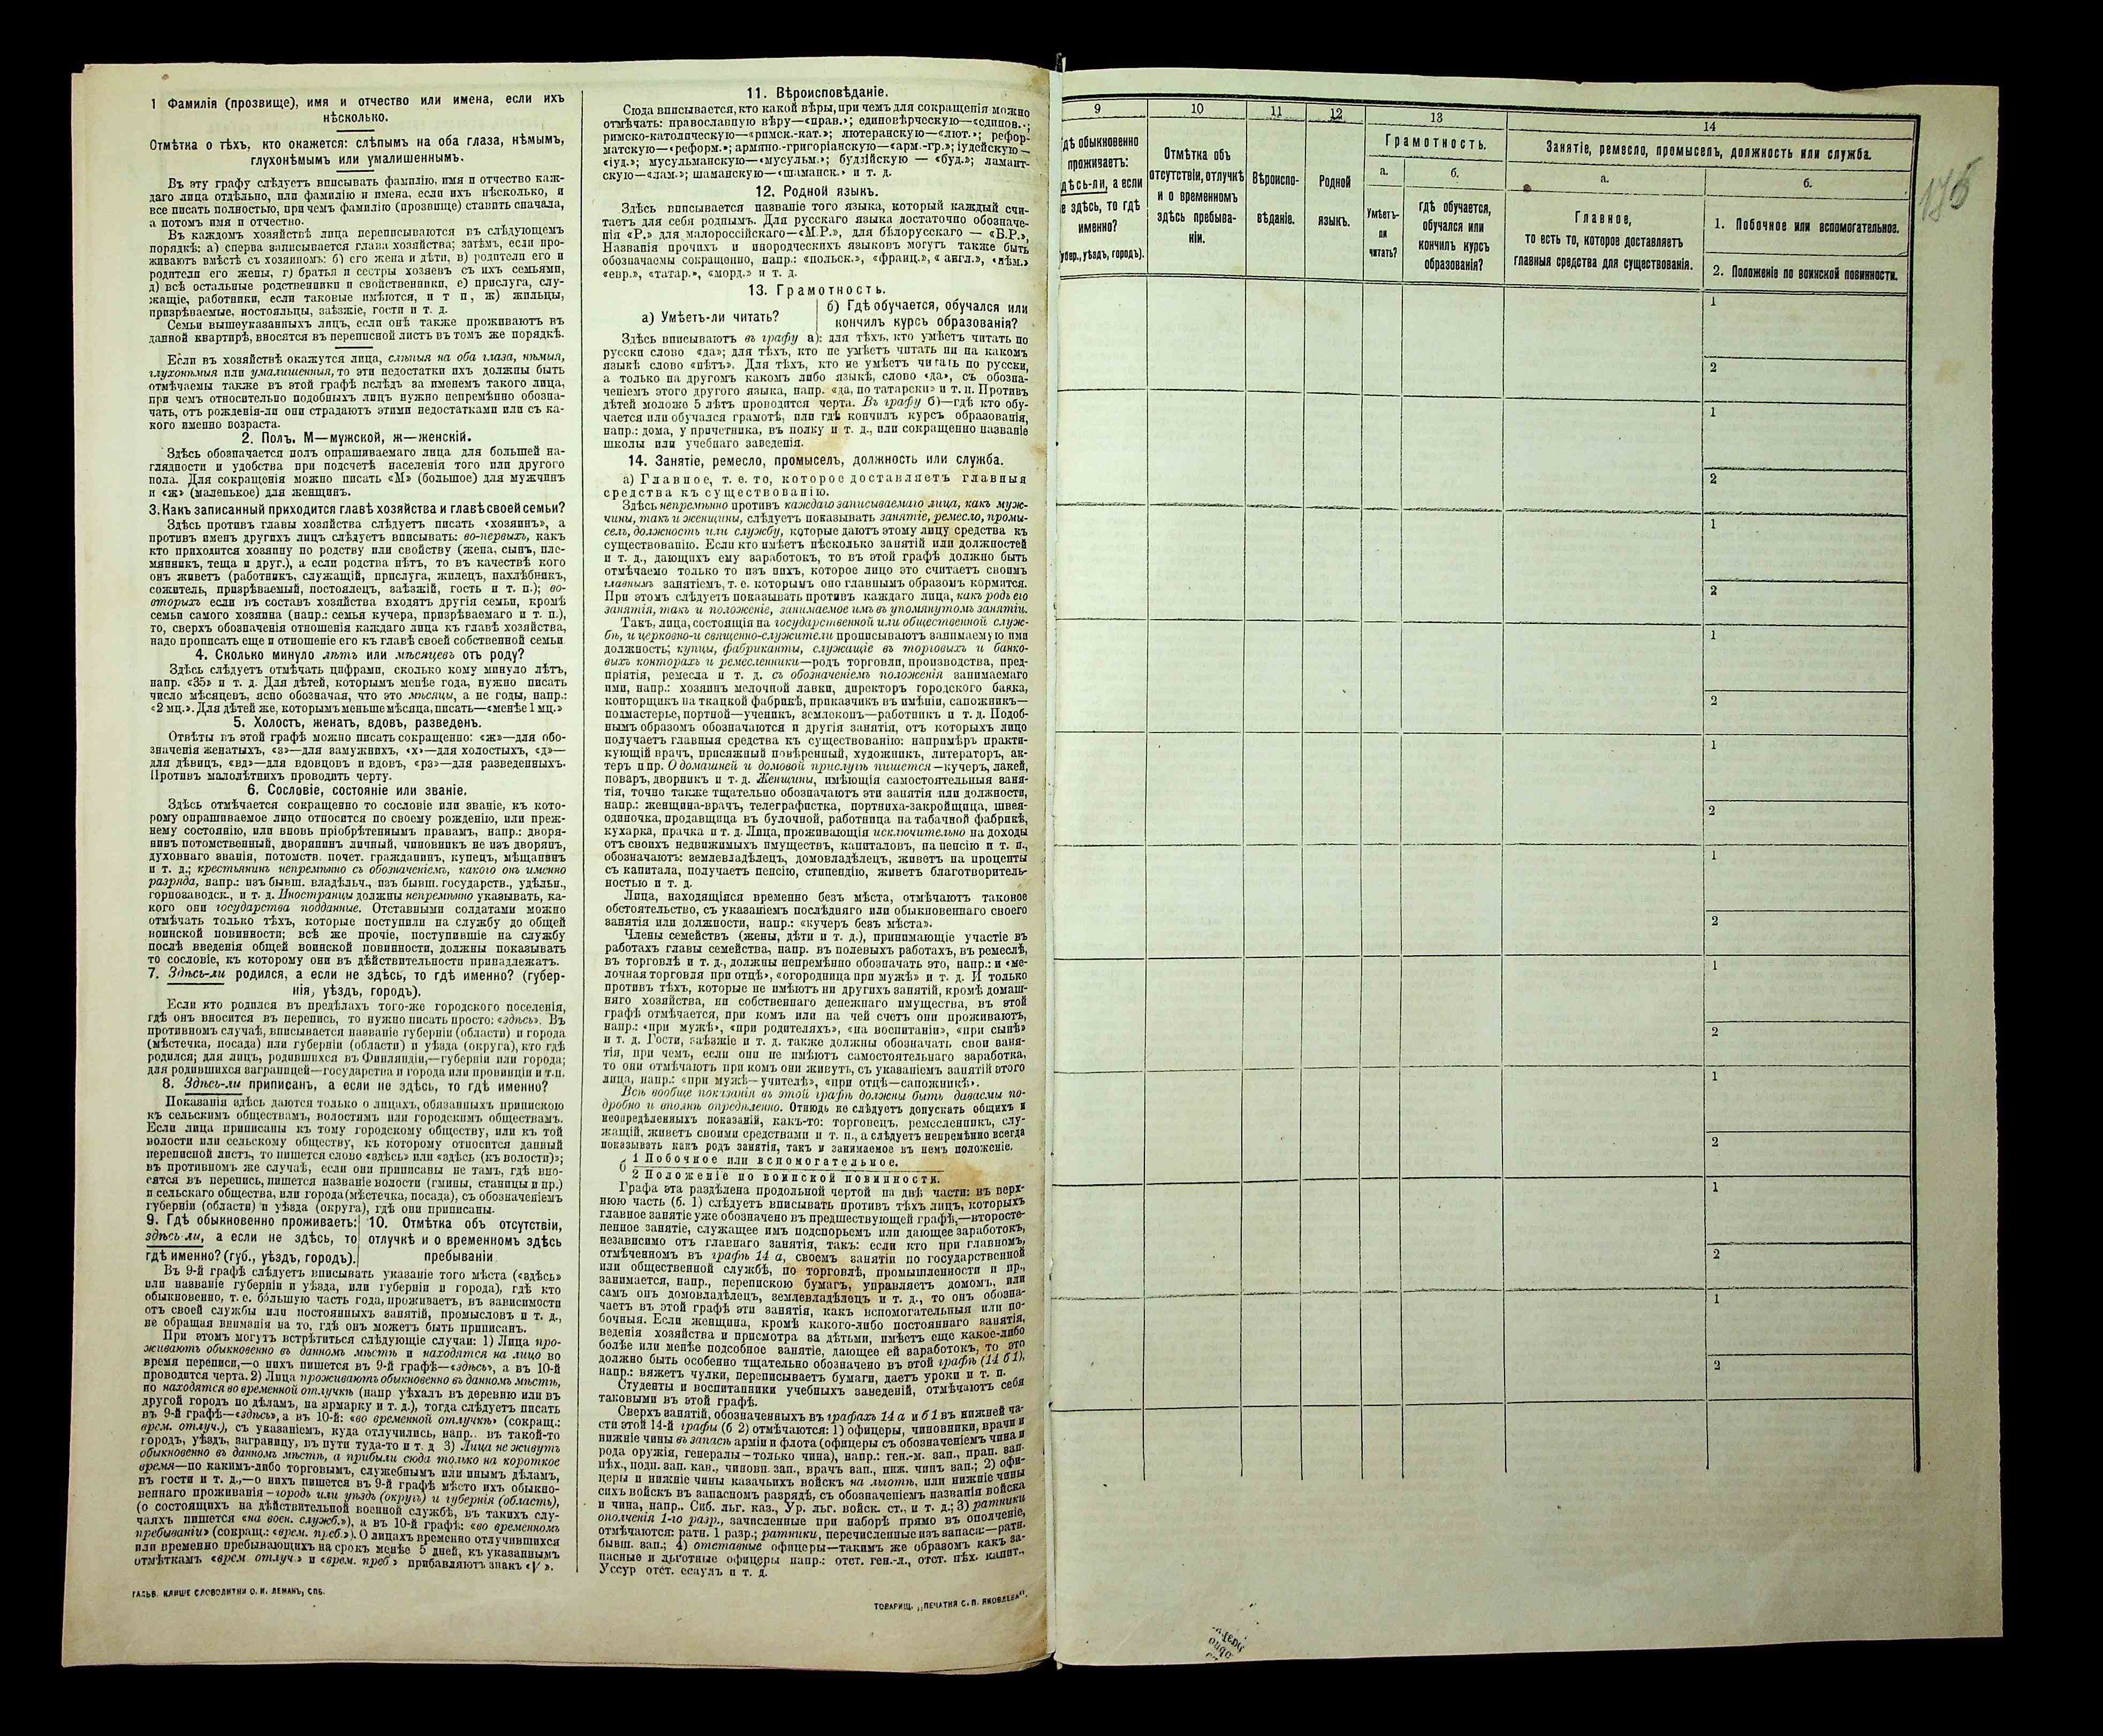 1 Фамилія (прозвище), имя и отчество или имена, если ихъ
нѣсколько.
Отмѣтка о тѣхъ, кто окажется: слѣпымъ на оба глаза, нѣмымъ,
глухонѣмымъ или умалишеннымъ.
Въ эту графу слѣдуетъ вписывать фамилію, имя и отчество каж-
даго лица отдѣльно, или фамилію и имена, если ихъ нѣсколько, и
все писать полностью, при чемъ фамилію (прозвище) ставить сначала,
а потомъ имя и отчество.
Въ каждомъ хозяйствѣ лица переписываются въ слѣдующемъ
порядкѣ: а) сперва записывается глава хозяйства; затѣмъ, если про-
живаютъ вмѣстѣ съ хозяиномъ: б) его жена и дѣти, в) родители его и
родители его жены, г) братья и сестры хозяевъ съ ихъ семьями,
д) всѣ остальные родственники и свойственники, е) прислуга, слу-
жащіе, работники, если таковые имѣются, и т п, ж) жильцы,
призрѣваемые, постояльцы, заѣзжіе, гости и т. д.
Семьи вышеуказанныхъ лицъ, если онѣ также проживаютъ въ
данной квартирѣ, вносятся въ переписной листъ въ томъ же порядкѣ.
Если въ хозяйствѣ окажутся лица, слѣпыя на оба глаза, нѣмыя,
глухонѣмыя или умалишенныя, то эти недостатки ихъ должны быть
отмѣчаемы также въ этой графѣ вслѣдъ за именемъ такого лица,
при чемъ относительно подобныхъ лицъ нужно непремѣнно обозна-
чать, отъ рожденія-ли они страдаютъ этими недостатками или съ ка-
кого именно возраста.
2. Полъ. М—мужской, ж—женскій.
Здѣсь обозначается полъ опрашиваемаго лица для большей на-
глядности и удобства при подсчетѣ населенія того или другого
пола. Для сокращенія можно писать «М» (большое) для мужчинъ
и «ж» (маленькое) для женщинъ.
3. Какъ записанный приходится главѣ хозяйства и главѣ своей семьи?
Здѣсь противъ главы хозяйства слѣдуетъ писать «хозяинъ», а
противъ именъ другихъ лицъ слѣдуетъ вписывать: во-первыхъ, какъ
кто приходится хозяину по родству или свойству (жена, сынъ, пле-
мянникъ, теща и друг.), а если родства нѣтъ, то въ качествѣ кого
онъ живетъ (работникъ, служащій, прислуга, жилецъ, нахлѣбникъ,
сожитель, призрѣваемый, постоялецъ, заѣзжій, гость и т. п.); во-
вторыхъ если въ составъ хозяйства входятъ другія семьи, кромѣ
семьи самого хозяина (напр.: семья кучера, призрѣваемаго и т. п.),
то, сверхъ обозначенія отношенія каждаго лица къ главѣ хозяйства,
надо прописать еще и отношеніе его къ главѣ своей собственной семьи
4. Сколько минуло лѣтъ или мѣсяцевъ отъ роду?
Здѣсь слѣдуетъ отмѣчать цифрами, сколько кому минуло лѣтъ,
напр. «35» и т. д. Для дѣтей, которымъ менѣе года, нужно писать
число мѣсяцевъ, ясно обозначая, что это мѣсяцы, а не годы, напр.:
«2 мц.». Для дѣтей же, которымъ меньше мѣсяца, писать—«менѣе 1 мц.»
5. Холостъ, женатъ, вдовъ, разведенъ.
Отвѣты въ этой графѣ можно писать сокращенно: «ж»—для обо-
значенія женатыхъ, «з»—для замужнихъ, «х»—для холостыхъ, «д»—
для дѣвицъ, «вд»—для вдовцовъ и вдовъ, «рз»—для разведенныхъ.
Противъ малолѣтнихъ проводить черту.
6. Сословіе, состояніе или званіе.
Здѣсь отмѣчается сокращенно то сословіе или званіе, къ кото-
рому опрашиваемое лицо относится по своему рожденію, или преж-
нему состоянію, или вновь пріобрѣтеннымъ правамъ, напр.: дворя-
нинъ потомственный, дворянинъ личный, чиновникъ не изъ дворянъ,
духовнаго званія, потомств. почет. гражданинъ, купецъ, мѣщанинъ
и т. д.; крестьянинъ непремѣнно съ обозначеніемъ, какого онъ именно
разряда, напр.: изъ бывш. владѣльч., изъ бывш. государств., удѣльн.,
горнозаводск., и т. д. Иностранцы должны непремѣнно указывать, ка-
кого они государства подданные. Отставными солдатами можно
отмѣчать только тѣхъ, которые поступили на службу до общей
воинской повинности; всѣ же прочіе, поступившіе на службу
послѣ введенія общей воинской повинности, должны показывать
то сословіе, къ которому они въ дѣйствительности принадлежатъ.
7. Здѣсь-ли родился, а если не здѣсь, то гдѣ именно? (губер-
нія, уѣздъ, городъ).
Если кто родился въ предѣлахъ того-же городского поселенія,
гдѣ онъ вносится въ перепись, то нужно писать просто: «здѣсь». Въ
противномъ случаѣ, вписывается названіе губерніи (области) и города
(мѣстечка, посада) или губерніи (области) и уѣзда (округа), кто гдѣ
родился; для лицъ, родившихся въ Финляндіи,—губерніи или города;
для родившихся заграницей—государства и города или провинціи и т.п.
8. Здѣсь-ли приписанъ, а если не здѣсь, то гдѣ именно?
Показанія здѣсь даются только о лицахъ, обязанныхъ припискою
къ сельскимъ обществамъ, волостямъ или городскимъ обществамъ.
Если лица приписаны къ тому городскому обществу, или къ той
волости или сельскому обществу, къ которому относится данный
переписной листъ, то пишется слово «здѣсь» или «здѣсь (къ волости)»;
въ противномъ же случаѣ, если они приписаны не тамъ, гдѣ вно-
сятся въ перепись, пишется названіе волости (гмины, станицы и пр.)
и сельскаго общества, или города (мѣстечка, посада), съ обозначеніемъ
губерніи (области) и уѣзда (округа), гдѣ они приписаны.
9. Гдѣ обыкновенно проживаетъ:
здѣсь ли, а если не здѣсь, то
гдѣ именно? (губ., уѣздъ, городъ).
10. Отмѣтка объ отсутствіи,
отлучкѣ и о временномъ здѣсь
пребываніи
Въ 9-й графѣ слѣдуетъ вписывать указаніе того мѣста («здѣсь»
или названіе губерніи и уѣзда, или губерніи и города), гдѣ кто
обыкновенно, т. е. бо́льшую часть года, проживаетъ, въ зависимости
отъ своей службы или постоянныхъ занятій, промысловъ и т. д.,
не обращая вниманія на то, гдѣ онъ можетъ быть приписанъ.
При этомъ могутъ встрѣтиться слѣдующіе случаи: 1) Лица про-
живаютъ обыкновенно въ данномъ мѣстѣ и находятся на лицо во
время переписи,—о нихъ пишется въ 9-й графѣ—«здѣсь», а въ 10-й
проводится черта. 2) Лица проживаютъ обыкновенно въ данномъ мѣстѣ,
но находятся во временной отлучкѣ (напр уѣхалъ въ деревню или въ
другой городъ по дѣламъ, на ярмарку и т. д.), тогда слѣдуетъ писать
въ 9-й графѣ—«здѣсь», а въ 10-й: «во временной отлучкѣ» (сокращ.:
врем. отлуч.), съ указаніемъ, куда отлучились, напр.. въ такой-то
городъ, уѣздъ, заграницу, въ пути туда-то и т. д 3) Лица не живутъ
обыкновенно въ данномъ мѣстѣ, а прибыли сюда только на короткое
время—по какимъ-либо торговымъ, служебнымъ или инымъ дѣламъ,
въ гости и т. д.,—о нихъ пишется въ 9-й графѣ мѣсто ихъ обыкно-
веннаго проживанія—городъ или уѣздъ (округъ) и губернія (область),
(о состоящихъ на дѣйствительной военной службѣ, въ такихъ слу-
чаяхъ пишется «на воен. служб.»), а въ 10-й графѣ: «во временномъ
пребываніи» (сокращ.: «врем. преб.»). О лицахъ временно отлучившихся
или временно пребывающихъ на срокъ менѣе 5 дней, къ указаннымъ
отмѣткамъ «врем отлуч.» и «врем. преб» прибавляютъ знакъ «V».
ГАЛЬВ. КЛИШЕ СЛОВОЛИТНИ О. И. ЛЕМАНЪ, СПБ.
11. Вѣроисповѣданіе.
Сюда вписывается, кто какой вѣры, при чемъ для сокращенія можно
отмѣчать: православную вѣру—«прав.»; единовѣрческую—«единов.»;
римско-католическую—«римск.-кат.»; лютеранскую—«лют.»; рефор-
матскую—«реформ.»; армяно.-григоріанскую—«арм.-гр.»; іудейскую—
«іуд.»; мусульманскую—«мусульм.»; буддійскую — «буд.»; ламаит-
скую—«лам.»; шаманскую—«шаманск.» и т. д.
12. Родной языкъ.
Здѣсь вписывается названіе того языка, который каждый счи-
таетъ для себя роднымъ. Для русскаго языка достаточно обозначе-
нія «Р.» для малороссійскаго—«М.Р.», для бѣлорусскаго — «Б.Р.»,
Названія прочихъ и инородческихъ языковъ могутъ также быть
обозначаемы сокращенно, напр.: «польск.», «франц.», « англ.», «нѣм.»
«евр.», «татар.», «морд.» и т. д.
13. Грамотность.
а) Умѣетъ-ли читать?
б) Гдѣ обучается, обучался или
кончилъ курсъ образованія?
Здѣсь вписываютъ въ графу а): для тѣхъ, кто умѣетъ читать по
русски слово «да»; для тѣхъ, кто не умѣетъ читать ни на какомъ
языкѣ слово «нѣтъ». Для тѣхъ, кто не умѣетъ читать по русски,
а только на другомъ какомъ либо языкѣ, слово «да», съ обозна-
ченіемъ этого другого языка, напр. «да, по татарски» и т. п. Противъ
дѣтей моложе 5 лѣтъ проводится черта. Въ графу б)—гдѣ кто обу-
чается или обучался грамотѣ, или гдѣ кончилъ курсъ образованія,
напр.: дома, у причетника, въ полку и т. д., или сокращенно названіе
школы или учебнаго заведенія.
14. Занятіе, ремесло, промыселъ, должность или служба.
а) Главное, т. е. то, которое доставляетъ главныя
средства къ существованію.
Здѣсь непремѣнно противъ каждаго записываемаго лица, какъ муж-
чины, такъ и женщины, слѣдуетъ показывать занятіе, ремесло, промы-
селъ, должность или службу, которые даютъ этому лицу средства къ
существованію. Если кто имѣетъ нѣсколько занятій или должностей
и т. д., дающихъ ему заработокъ, то въ этой графѣ должно быть
отмѣчаемо только то изъ нихъ, которое лицо это считаетъ своимъ
главнымъ занятіемъ, т. е. которымъ оно главнымъ образомъ кормится.
При этомъ слѣдуетъ показывать противъ каждаго лица, какъ родъ его
занятія, такъ и положеніе, занимаемое имъ въ упомянутомъ занятіи.
Такъ, лица, состоящія на государственной или общественной служ-
бѣ, и церковно-и священно-служители прописываютъ занимаемую ими
должность; купцы, фабриканты, служащіе въ торговыхъ и банко-
выхъ конторахъ и ремесленники—родъ торговли, производства, пред-
пріятія, ремесла и т. д. съ обозначеніемъ положенія занимаемаго
ими, напр.: хозяинъ мелочной лавки, директоръ городского банка,
конторщикъ на ткацкой фабрикѣ, приказчикъ въ имѣніи, сапожникъ—
подмастерье, портной—ученикъ, землекопъ—работникъ и т. д. Подоб-
нымъ образомъ обозначаются и другія занятія, отъ которыхъ лицо
получаетъ главныя средства къ существованію: напримѣръ практи-
кующій врачъ, присяжный повѣренный, художникъ, литераторъ, ак-
теръ и пр. О домашней и домовой прислугѣ пишется—кучеръ, лакей,
поваръ, дворникъ и т. д. Женщины, имѣющія самостоятельныя заня-
тія, точно также тщательно обозначаютъ эти занятія или должности,
напр.: женщина-врачъ, телеграфистка, портниха-закройщица, швея-
одиночка, продавщица въ булочной, работница на табачной фабрикѣ,
кухарка, прачка и т. д. Лица, проживающія исключительно на доходы
отъ своихъ недвижимыхъ имуществъ, капиталовъ, на пенсію и т. п.,
обозначаютъ: землевладѣлецъ, домовладѣлецъ, живетъ на проценты
съ капитала, получаетъ пенсію, стипендію, живетъ благотворитель-
ностью и т. д.
Лица, находящіяся временно безъ мѣста, отмѣчаютъ таковое
обстоятельство, съ указаніемъ послѣдняго или обыкновеннаго своего
занятія или должности, напр.: «кучеръ безъ мѣста».
Члены семействъ (жены, дѣти и т. д.), принимающіе участіе въ
работахъ главы семейства, напр. въ полевыхъ работахъ, въ ремеслѣ,
въ торговлѣ и т. д., должны непремѣнно обозначать это, напр.: и «ме-
лочная торговля при отцѣ», «огородница при мужѣ» и т. д. И только
противъ тѣхъ, которые не имѣютъ ни другихъ занятій, кромѣ домаш-
няго хозяйства, ни собственнаго денежнаго имущества, въ этой
графѣ отмѣчается, при комъ или на чей счетъ они проживаютъ,
напр.: «при мужѣ», «при родителяхъ», «на воспитаніи», «при сынѣ»
и т. д. Гости, заѣзжіе и т. д. также должны обозначать свои заня-
тія, при чемъ, если они не имѣютъ самостоятельнаго заработка,
то они отмѣчаютъ при комъ они живутъ, съ указаніемъ занятій этого
лица, напр.: «при мужѣ—учителѣ», «при отцѣ—сапожникѣ».
Всѣ вообще показанія въ этой графѣ должны быть даваемы по-
дробно и вполнѣ опредѣленно. Отнюдь не слѣдуетъ допускать общихъ и
неопредѣленныхъ показаній, какъ-то: торговецъ, ремесленникъ, слу-
жащій, живетъ своими средствами и т. п., а слѣдуетъ непремѣнно всегда
показывать какъ родъ занятія, такъ и занимаемое въ немъ положеніе.
б 1 Побочное или вспомогательное.
2 Положеніе по воинской повинности.
Графа эта раздѣлена продольной чертой на двѣ части: въ верх-
нюю часть (б. 1) слѣдуетъ вписывать противъ тѣхъ лицъ, которыхъ
главное занятіе уже обозначено въ предшествующей графѣ,—второсте-
пенное занятіе, служащее имъ подспорьемъ или дающее заработокъ,
независимо отъ главнаго занятія, такъ: если кто при главномъ,
отмѣченномъ въ графѣ 14 а, своемъ занятіи по государственной
или общественной службѣ, по торговлѣ, промышленности и пр.,
занимается, напр., перепискою бумагъ, управляетъ домомъ, или
самъ онъ домовладѣлецъ, землевладѣлецъ и т. д., то онъ обозна-
чаетъ въ этой графѣ эти занятія, какъ вспомогательныя или по-
бочныя. Если женщина, кромѣ какого-либо постояннаго занятія,
веденія хозяйства и присмотра за дѣтьми, имѣетъ еще какое-либо
болѣе или менѣе подсобное занятіе, дающее ей заработокъ, то это
должно быть особенно тщательно обозначено въ этой графѣ (14 б 1),
напр.: вяжетъ чулки, переписываетъ бумаги, даетъ уроки и т. п.
Студенты и воспитанники учебныхъ заведеній, отмѣчаютъ себя
таковыми въ этой графѣ.
Сверхъ занятій, обозначенныхъ въ графахъ 14 а и б 1 въ нижней ча-
сти этой 14-й графы (б 2) отмѣчаются: 1) офицеры, чиновники, врачи и
нижніе чины въ запасѣ арміи и флота (офицеры съ обозначеніемъ чина и
рода оружія, генералы—только чина), напр.: ген.-м. зап., прап. зап.
пѣх., подп. зап. кав., чиновн. зап., врачъ зап., ниж. чинъ зап.; 2) офи-
церы и нижніе чины казачьихъ войскъ на льготѣ, или нижніе чины
сихъ войскъ въ запасномъ разрядѣ, съ обозначеніемъ названія войска
и чина, напр.. Сиб. льг. каз., Ур. льг. войск. ст., и т. д.; 3) ратники
ополченія 1-го разр., зачисленные при наборѣ прямо въ ополченіе,
отмѣчаются: ратн. 1 разр.; ратники, перечисленные изъ запаса:—ратн.
бывш. зап.; 4) отставные офицеры—такимъ же образомъ какъ за-
пасные и льготные офицеры напр.: отст. ген.-л., отст. пѣх. капит.,
Уссур отст. есаулъ и т. д.
ТОВАРИЩ. „ПЕЧАТНЯ С. П. ЯКОВЛЕВА“.
9
10
11
12
13
14
Гдѣ обыкновенно
проживаетъ:
здѣсь-ли, а если
не здѣсь, то гдѣ
именно?
(губер., уѣздъ, городъ).
Отмѣтка объ
отсутствіи, отлучкѣ
и о временномъ
здѣсь пребыва-
ніи.
Вѣроиспо-
вѣданіе.
Родной
языкъ.
Грамотность.
а.
Умѣетъ-
ли
читать?
б.
гдѣ обучается,
обучался или
кончилъ курсъ
образованія?
Занятіе, ремесло, промыселъ, должность или служба.
а.
Главное,
то есть то, которое доставляетъ
главныя средства для существованія.
б.
1. Побочное или вспомогательное.
2. Положеніе по воинской повинности.
1
2
1
2
1
2
1
2
1
2
1
2
1
2
1
2
1
2
1
2